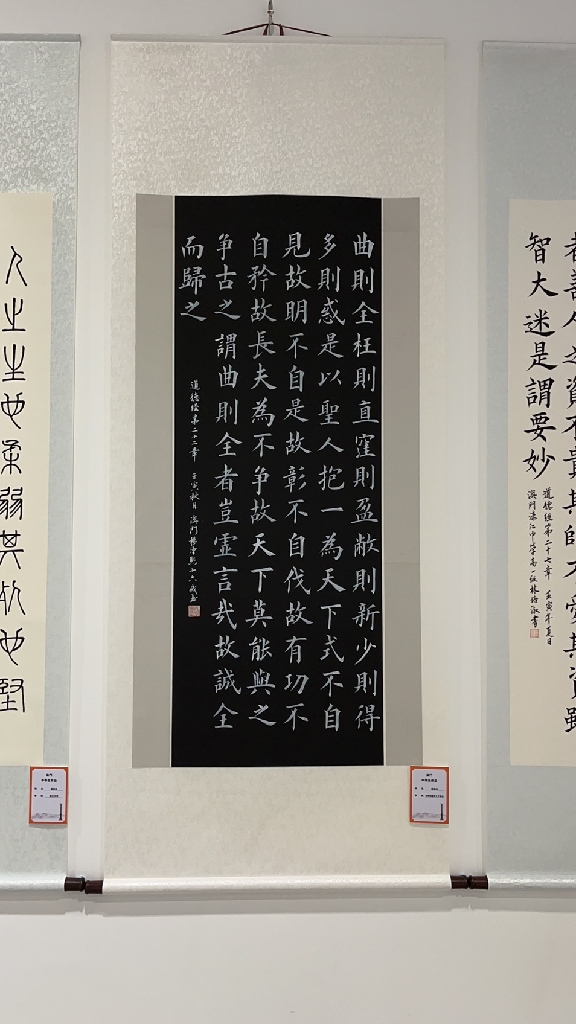 者善人之資不貴其師不愛其資雖
智大迷是謂要妙
道德經第二十七章 壬寅年夏日
澳門濠江中學高一 書
曲則全枉則直窪則盈敝則新少則得
多則惑是以聖人抱一為天下式不自
見故明不自是故彰不自伐故有功不
自矜故長夫為不争故天下莫能與之
争古之謂曲則全者豈虛言哉故誠全
而歸之
道德經第二十二章 壬寅秋月 澳門楊 十六歲書
人之生也柔弱其死也堅